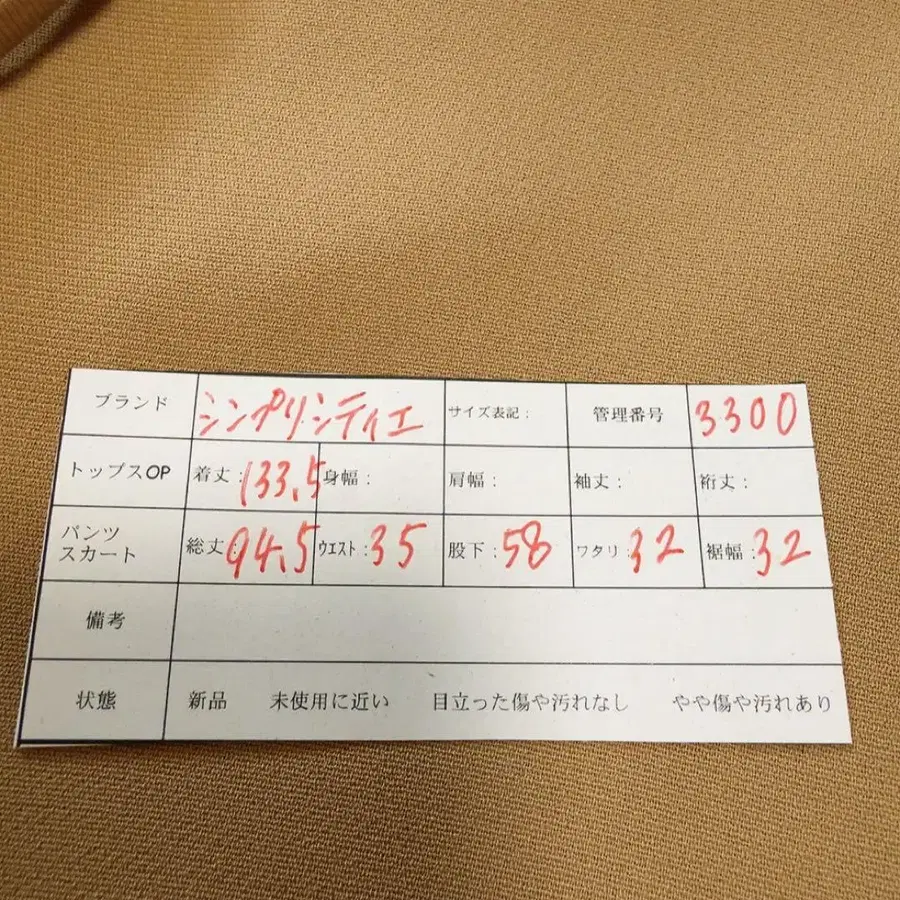 ブランド シンプリシティエ サイズ表記: 管理番号 3300
トップスOP 着丈:133.5 身幅: 肩幅: 袖丈: 裄丈:
パンツ
スカート 総丈:94.5 ウエスト:35 股下:58 ワタリ:32 裾幅:32
備考
状態 新品 未使用に近い 目立った傷や汚れなし やや傷や汚れあり